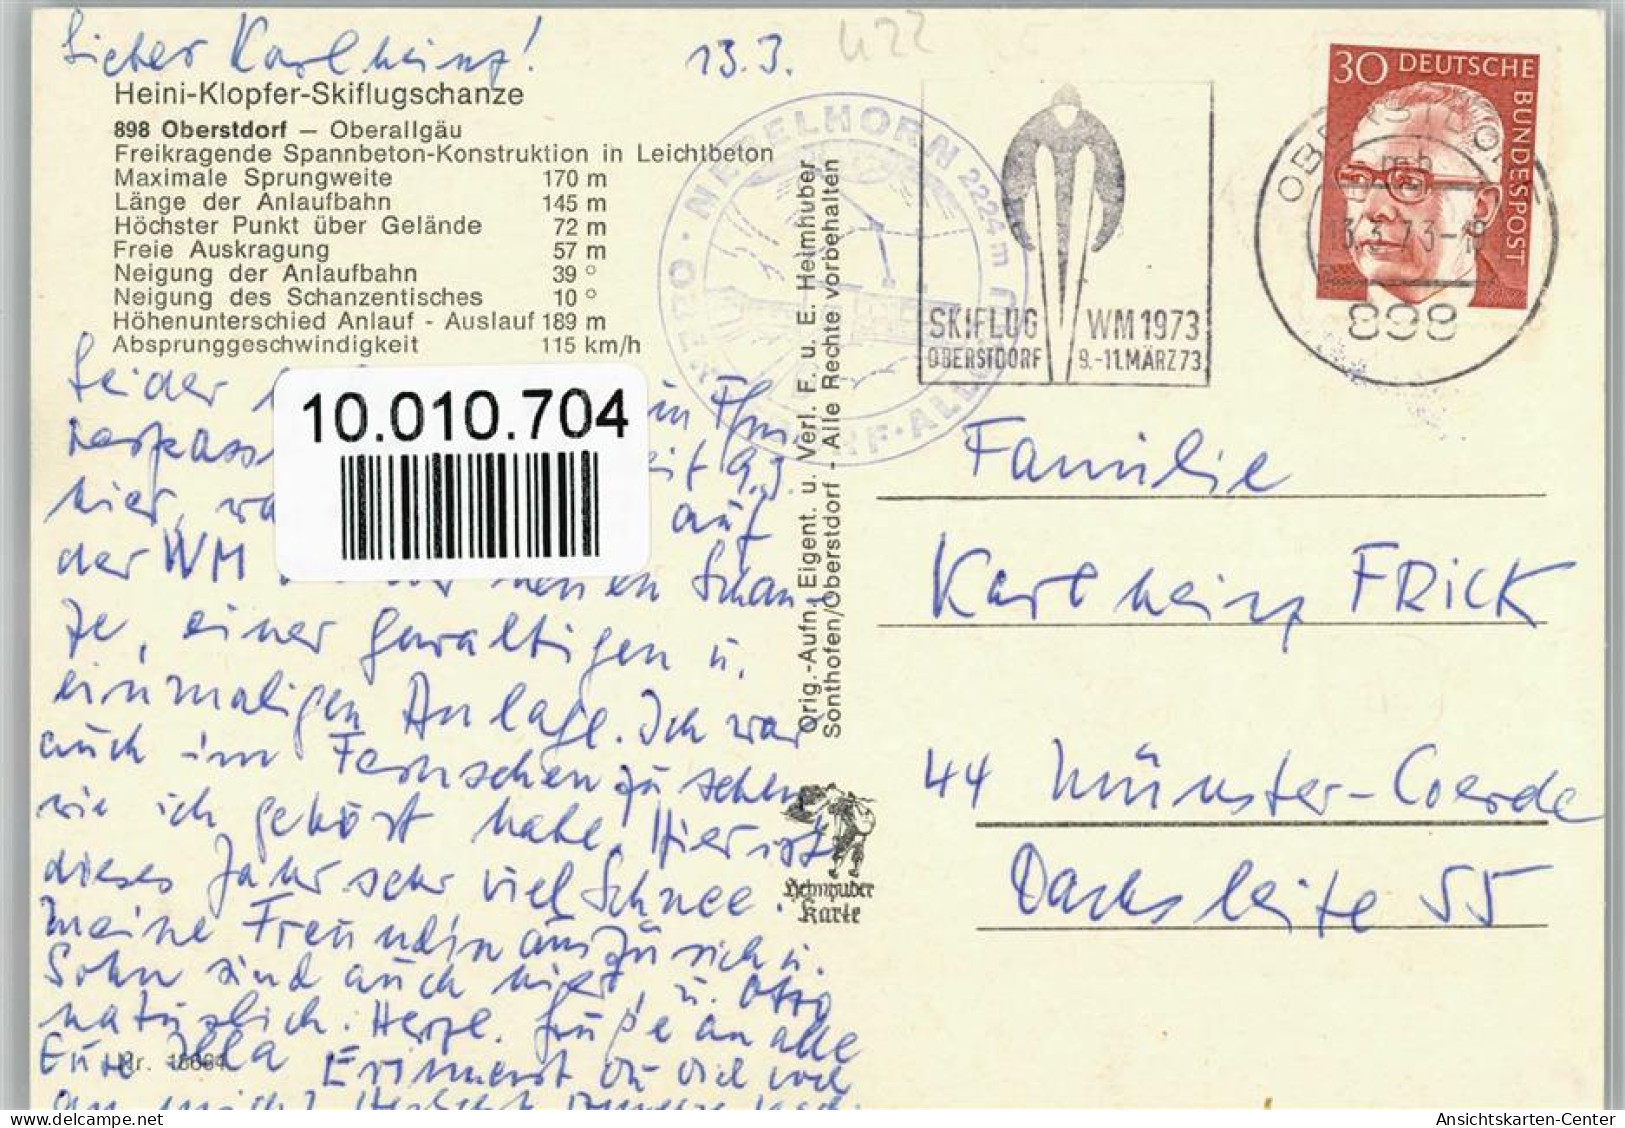 Lieber Karlheinz!
13.3.
422
Heini-Klopfer-Skiflugschanze
898 Oberstdorf — Oberallgäu
Freikragende Spannbeton-Konstruktion in Leichtbeton
Maximale Sprungweite 170 m
Länge der Anlaufbahn 145 m
Höchster Punkt über Gelände 72 m
Freie Auskragung 57 m
Neigung der Anlaufbahn 39 °
Neigung des Schanzentisches 10 °
Höhenunterschied Anlauf - Auslauf 189 m
Absprunggeschwindigkeit 115 km/h
Leider in
seit 9.3.
hier, auf
der WM neuen Schan-
ze, einer gewaltigen u.
einmaligen Anlage. Ich war
auch im Fernsehen zu sehen
wie ich gehört habe. Hier ist
dieses Jahr sehr viel Schnee.
meine Freundin aus Zürich u.
Sohn sind auch hier, u. Otto
natürlich. Herzl. Grüße an alle
Eure Illa Erinnerst Du Dich noch
an mich?
Nr. 18664
10.010.704
NEBELHORN 2224 m
Orig.-Aufn., Eigent. u. Verl. F. u. E. Heimhuber
Sonthofen/Oberstdorf - Alle Rechte vorbehalten
Heimhuber
Karte
SKIFLUG WM 1973
OBERSTDORF 9.-11.MÄRZ 73
30 DEUTSCHE
BUNDESPOST
OBERSTDORF
mb
13.3.73-18
898
Familie
Karlheinz FRICK
44 Münster-Coerde
Dachsleite 55
Ansichtskarten-Center